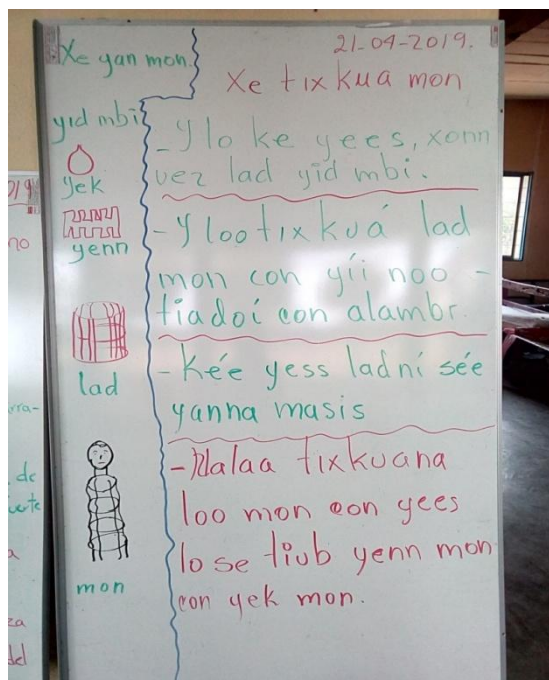 Xe yan mon.
yid mbi
yek
yenn
lad
mon
21-04-2019.
Xe tixkua mon
- Y lo ke yees, xonn
vez lad yid mbi.
- Y loo tixkuá lad
mon con yíi noo -
tiadoí con alambr.
- Kée yess ladní sée
yanna masis
- Nalaa tixkuana
loo mon con yees
lo se tiub yenn mon
con yek mon.
no
de
a
za
del